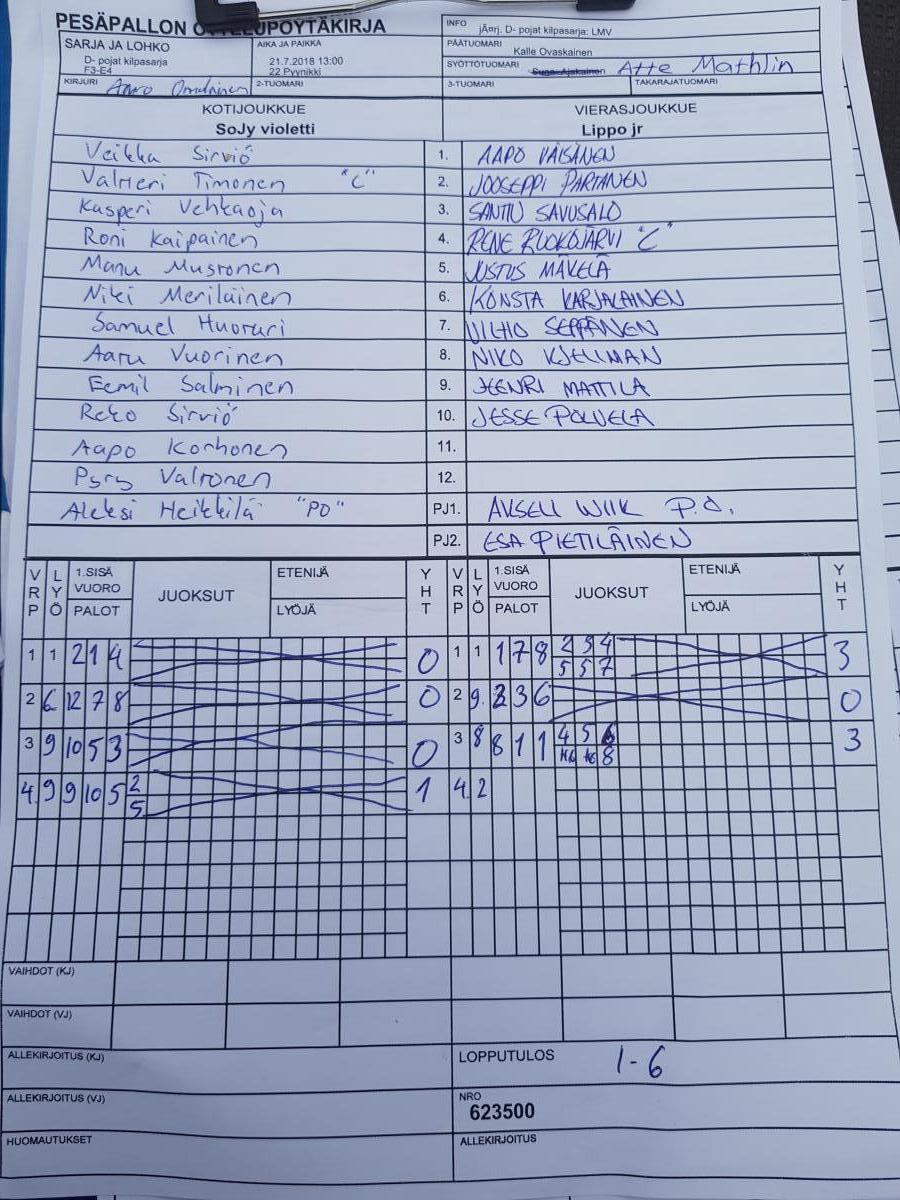 PESÄPALLON OTTELUPÖYTÄKIRJA
INFO jÃ¤rj. D- pojat kilpasarja: LMV
SARJA JA LOHKO
D- pojat kilpasarja
F3-E4
AIKA JA PAIKKA
21.7.2018 13:00
22 Pyynikki
PÄÄTUOMARI Kalle Ovaskainen
SYÖTTÖTUOMARI Atte Mathlin
KIRJURI
2-TUOMARI
3-TUOMARI
TAKARAJATUOMARI
KOTIJOUKKUE
SoJy violetti
VIERASJOUKKUE
Lippo jr
Veikka Sirviö 1. AAPO VÄISÄNEN
Valtteri Timonen "C" 2. JOOSEPPI PARTANEN
Kasperi Vehkaoja 3. SANTTU SAVUSALO
Roni Kaipainen 4. RENE RUOKOJÄRVI "C"
Manu Mustonen 5. JUSTUS MÄKELÄ
Niki Meriläinen 6. KONSTA KARJALAINEN
Samuel Huoturi 7. VILHO SEPPÄNEN
Aatu Vuorinen 8. NIKO KJELLMAN
Eemil Salminen 9. HENRI MATTILA
Reko Sirviö 10. JESSE POLVELA
Aapo Korhonen 11.
Pyry Valtonen 12.
Aleksi Heikkilä "PD" PJ1. AKSELI WIIK P.d.
PJ2. ESA PIETILÄINEN
VRP LYÖ 1.SISÄ VUORO PALOT JUOKSUT ETENIJÄ LYÖJÄ YHT VRP LYÖ 1.SISÄ VUORO PALOT JUOKSUT ETENIJÄ LYÖJÄ YHT
1 1 2 1 4 0 1 1 1 7 8 2 3 4 3
5 5 7
2 6 12 7 8 0 2 9. 2 3 6 0
3 9 10 5 3 0 3 8 8 1 1 4 5 6 3
8
4. 9 9 10 5 2 1 4. 2
5
VAIHDOT (KJ)
VAIHDOT (VJ)
ALLEKIRJOITUS (KJ)
LOPPUTULOS 1-6
ALLEKIRJOITUS (VJ)
NRO
623500
HUOMAUTUKSET
ALLEKIRJOITUS